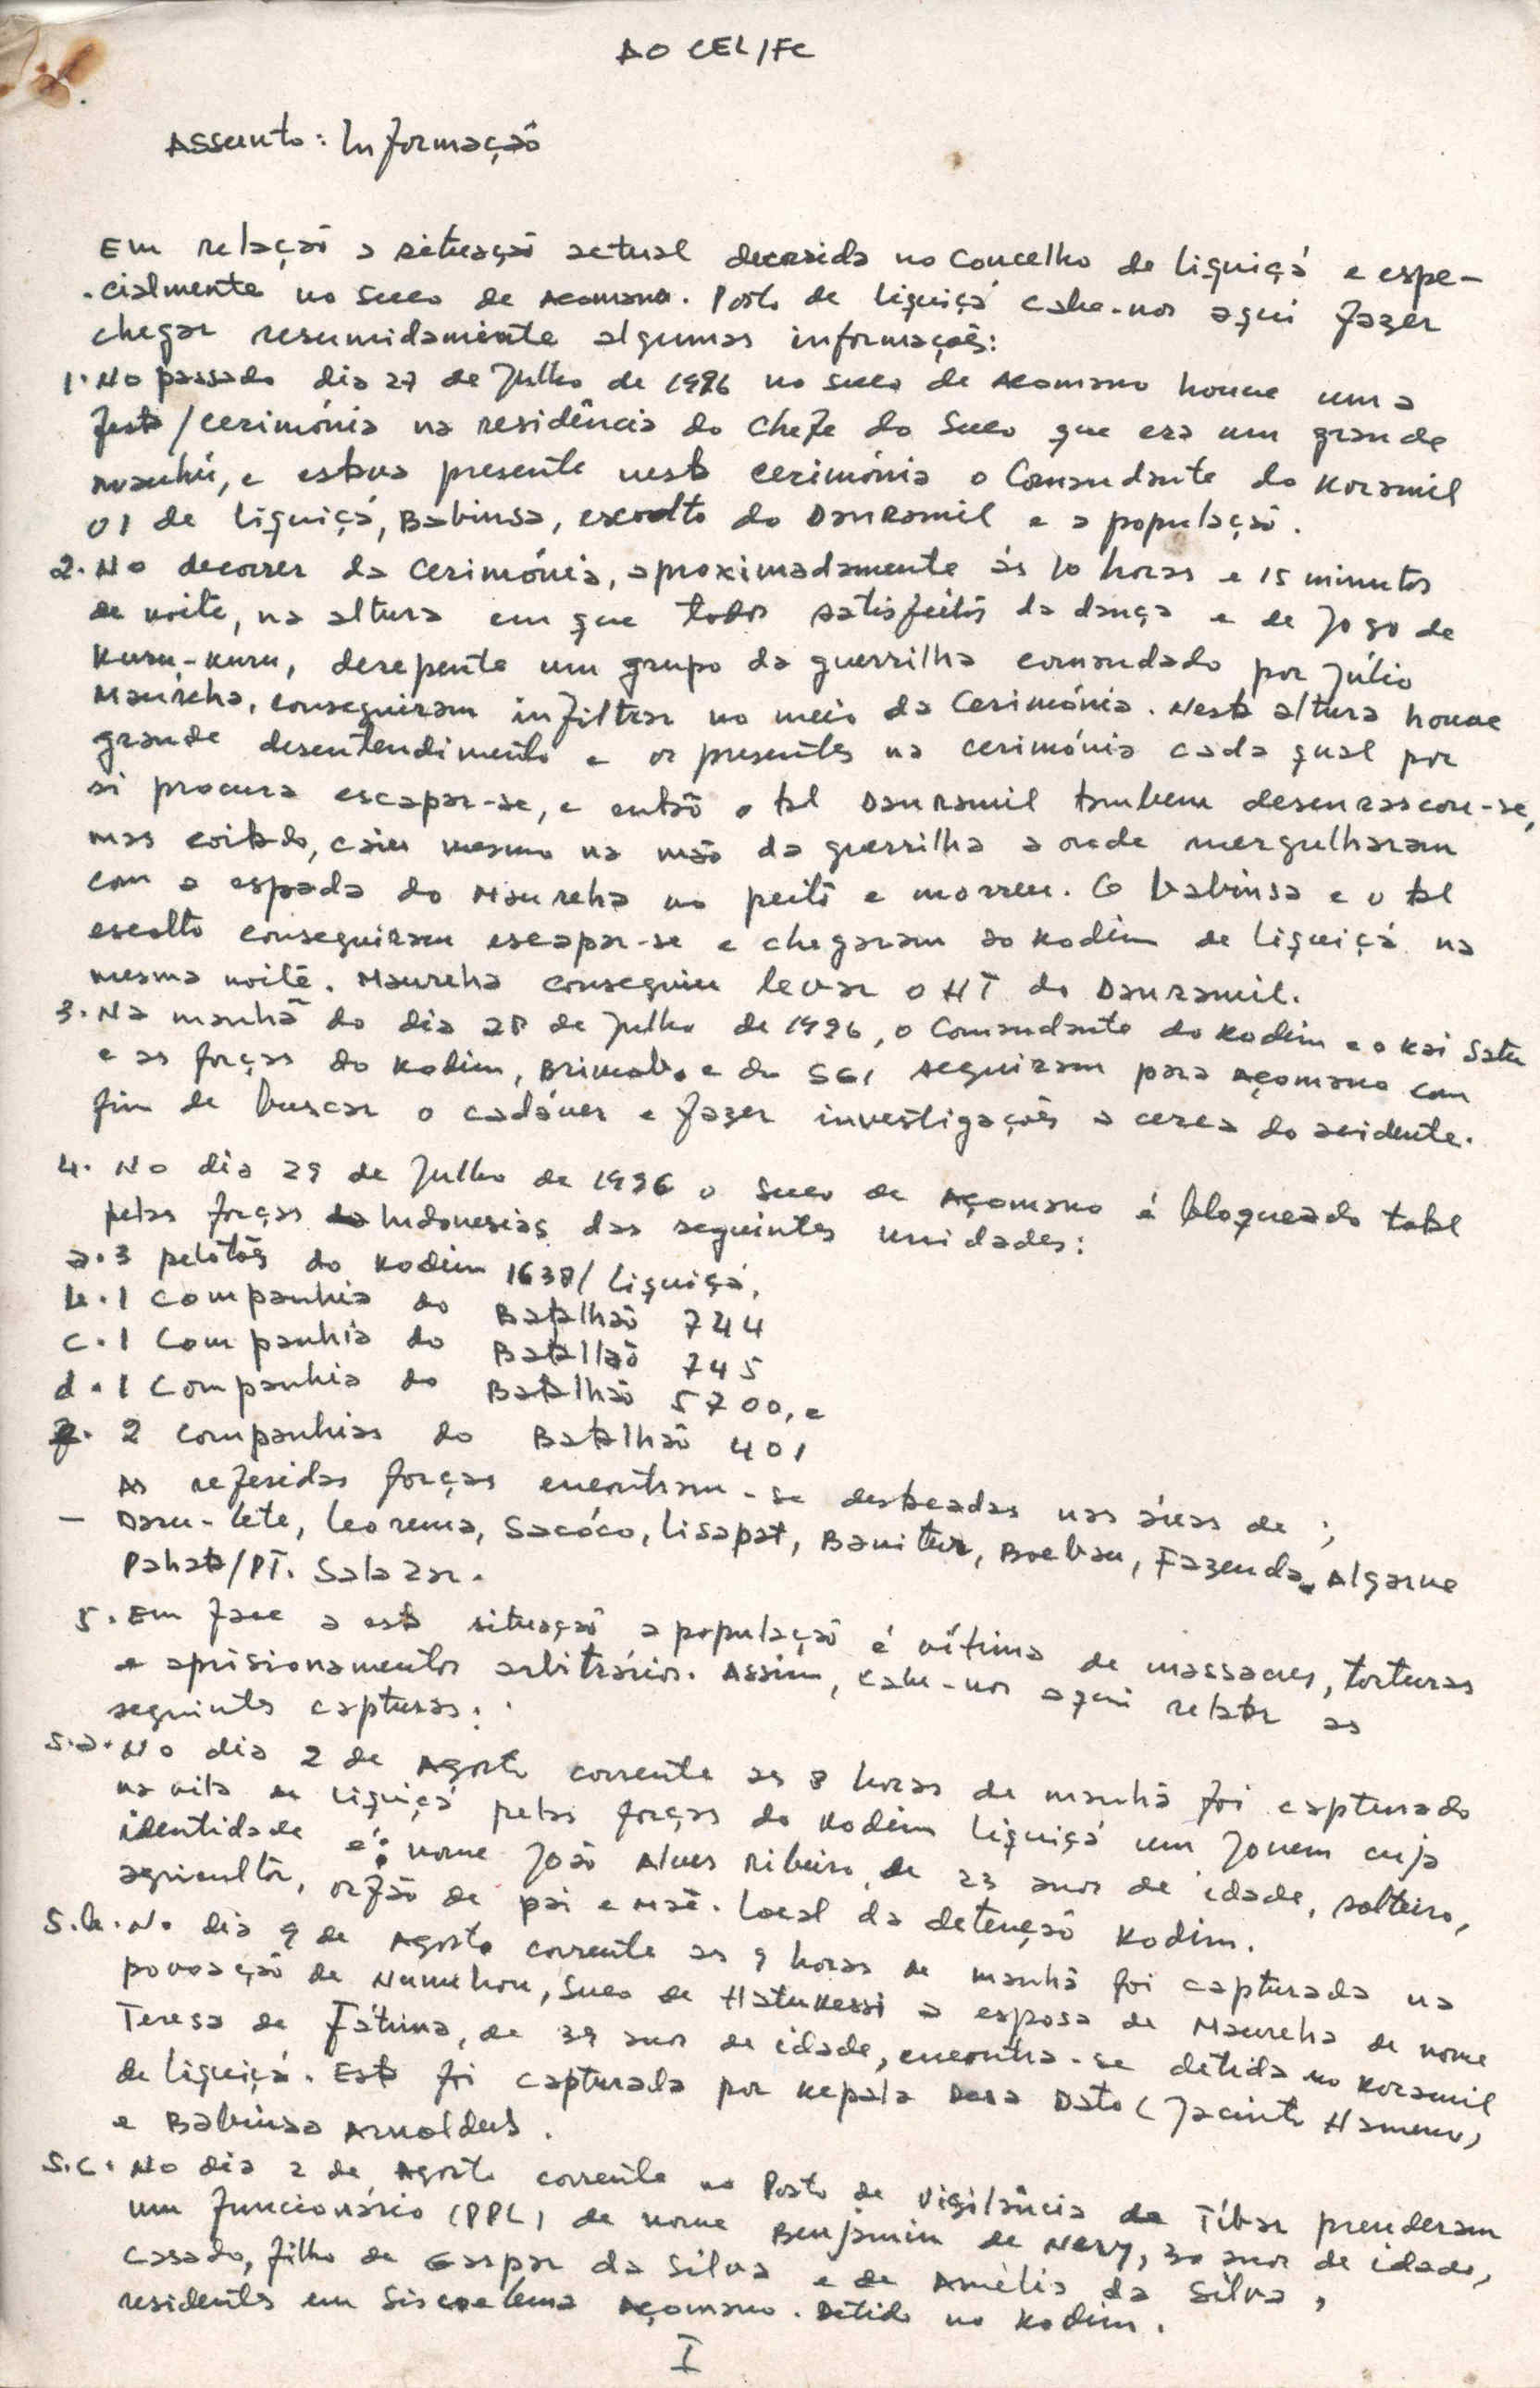 AO CEL/FC
Assunto: Informação
Em relação a situação actual decorrida no Concelho de Liquiçá e espe-
cialmente no Suco de Acomano. Posto de Liquiçá cabe-nos aqui fazer
chegar resumidamente algumas informações:
1. No passado dia 27 de Julho de 1996 no suco de Acomano houve uma
festa/cerimónia na residência do Chefe do Suco que era um grande
manhú, e estava presente nesta cerimónia o Comandante do Koramil
01 de Liquiçá, Babinsa, escolto do Danramil e a população.
2. No decorrer da Cerimónia, aproximadamente ás 10 horas e 15 minutos
de noite, na altura em que todos satisfeitos da dança e de jogo de
Kuru-kuru, derepente um grupo da guerrilha comandado por Júlio
Maureha, conseguiram infiltrar no meio da Cerimónia. Nesta altura houve
grande desentendimento e os presentes na cerimónia cada qual por
si procura escapar-se, e então o tal Danramil tambem desenrascou-se,
mas coitado, caiu mesmo na mão da guerrilha a onde mergulharam
com a espada do Maureha no peito e morreu. O babinsa e o tal
escolto conseguiram escapar-se e chegaram ao Kodim de Liquiçá na
mesma noite. Maureha conseguiu levar o HT do Danramil.
3. Na manhã do dia 28 de Julho de 1996, o Comandante do Kodim e o Kai Satu
e as forças do Kodim, Brimob. e do SGI seguiram para Açomano com
fim de buscar o cadáver e fazer investigações a cerca do acidente.
4. No dia 29 de Julho de 1996 o Suco de Açomano é bloqueado total
pelas forças Indonesias das seguintes unidades:
a. 3 pelotões do Kodim 1638/Liquiçá,
b. 1 companhia do Batalhão 744
c. 1 Companhia do Batalhão 745
d. 1 Companhia do Batalhão 5700, e
2 companhias do Batalhão 401
As referidas forças encontram-se destacadas nas áreas de;
- Daru-lete, Leorema, Sacóco, Lisapat, Banitur, Boebau, Fazenda Algarve
Pahata/PT. Salazar.
5. Em face a esta situação a população é vítima de massacres, torturas
e aprisionamentos arbitrários. Assim, cabe-nos aqui relatar as
seguintes capturas:
5.a. No dia 2 de Agosto corrente as 8 horas de manhã foi capturado
na vila de Liquiçá pelas forças do Kodim Liquiçá um Jovem cuja
identidade é: nome João Alves Ribeiro, de 23 anos de idade, solteiro,
agricultor, orfão de pai e mãe. Local da detenção Kodim.
5.b. No dia 9 de Agosto corrente as 9 horas de manhã foi capturada na
povoação de Numuhou, Suco de Hatukessi a esposa de Maureha de nome
Teresa de Fátima, de 39 anos de idade, encontra-se detida no Koramil
de Liquiçá. Esta foi capturada por Kepala Desa Dato (Jacinto Hameno)
e Babinsa Arnoldus.
5.c. No dia 2 de Agosto corrente no Posto de Vigilância de Tíbar prenderam
um funcionário (PPL) de nome Benjamin de Nery, 30 anos de idade,
casado, filho de Gaspar da Silva e de Amélia da Silva,
residentes em Siscoelema Açomano. Detido no Kodim.
I